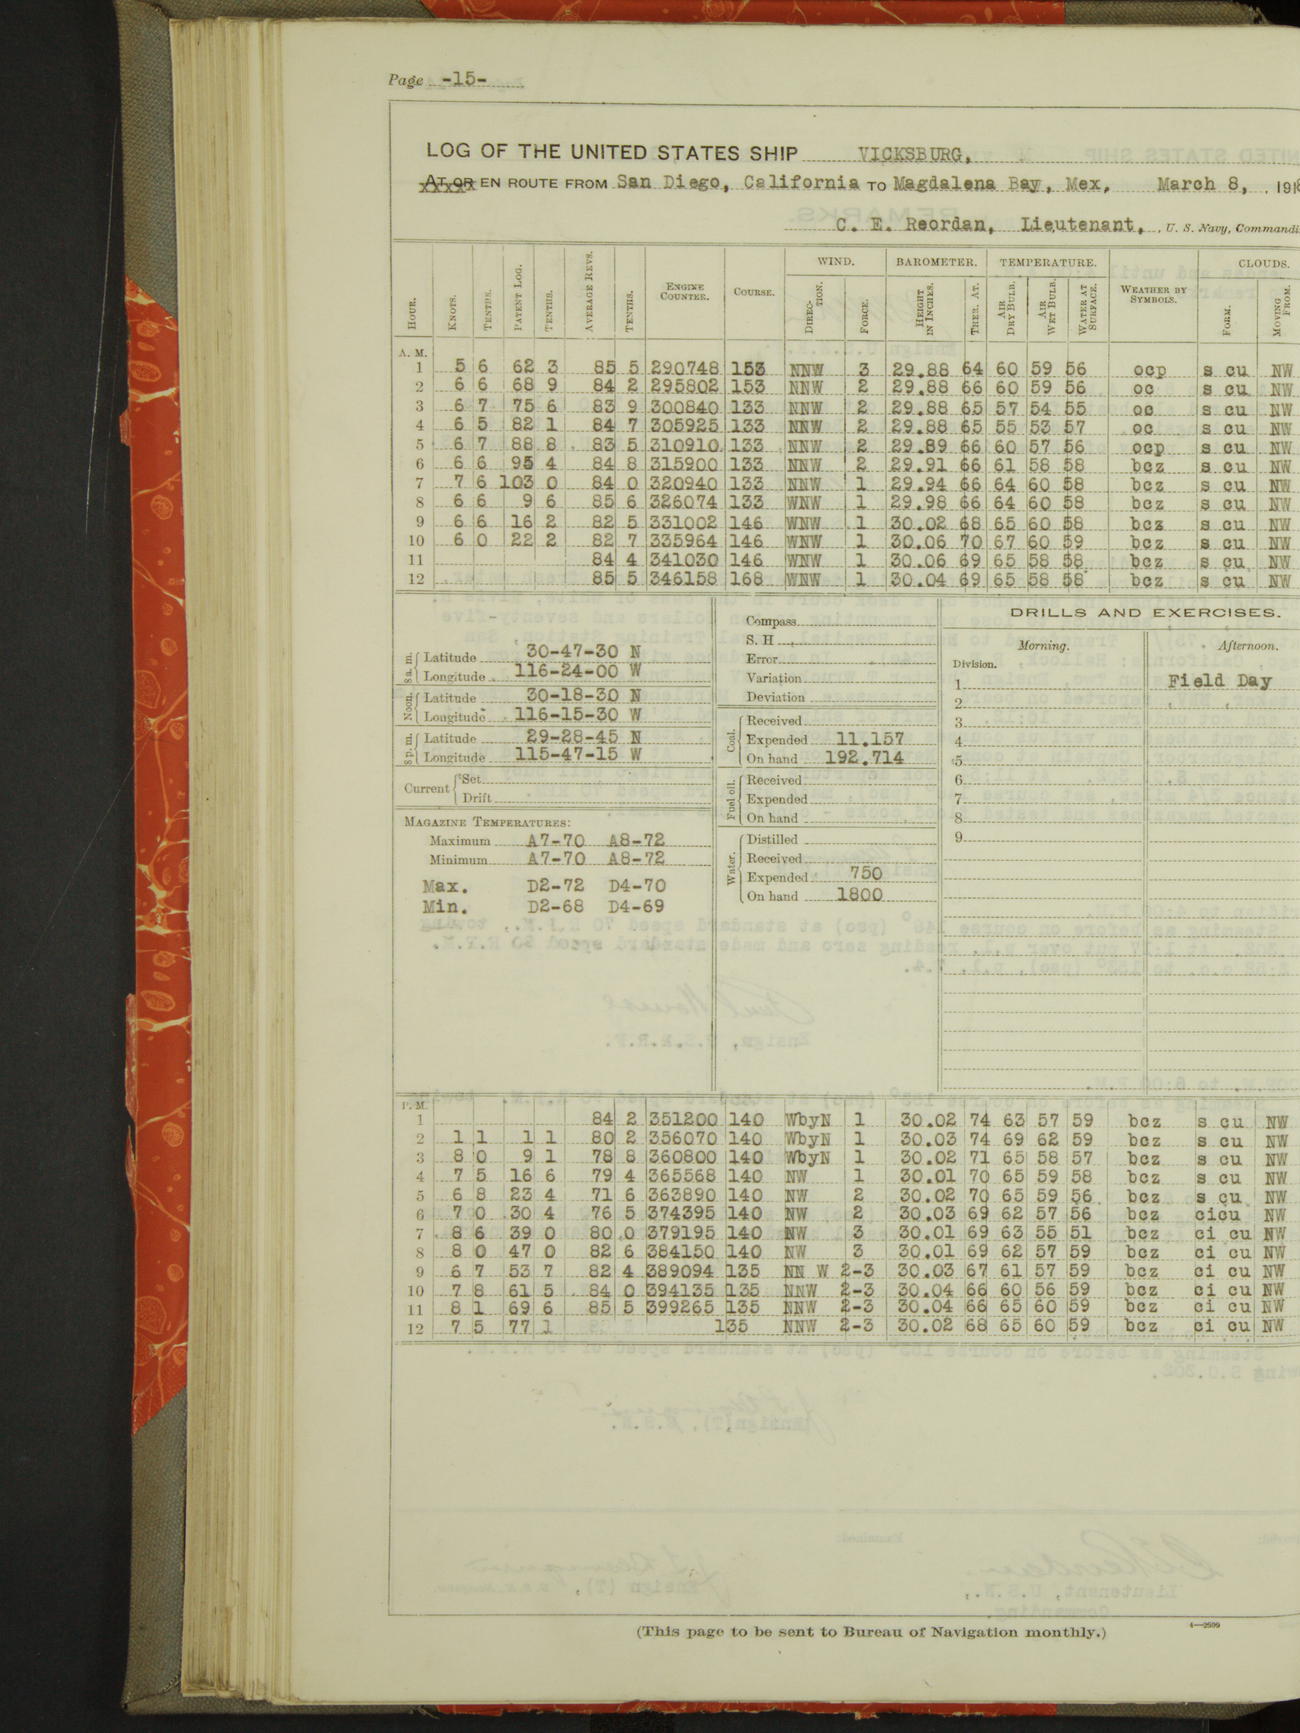 Page -15-
LOG OF THE UNITED STATES SHIP VICKSBURG,
AT OR EN ROUTE FROM San Diego, California TO Magdalena Bay, Mex, March 8, , 1918
C. E. Reordan, Lieutenant, , U. S. Navy, Commandi
HOUR. KNOTS. TENTHS. PATENT LOG. TENTHS. AVERAGE REVS. TENTHS. ENGINE COUNTER. COURSE. WIND. DIRECTION. FORCE. BAROMETER. HEIGHT IN INCHES. THER. AT. TEMPERATURE. AIR DRY BULB. AIR WET BULB. WATER AT SURFACE. WEATHER BY SYMBOLS. CLOUDS. FORM. MOVING FROM.
A. M.
1 5 6 62 3 85 5 290748 153 NNW 3 29.88 64 60 59 56 ocp s cu NW
2 6 6 68 9 84 2 295802 153 NNW 2 29.88 66 60 59 56 oc s cu NW
3 6 7 75 6 83 9 300840 133 NNW 2 29.88 65 57 54 55 oc s cu NW
4 6 5 82 1 84 7 305925 133 NNW 2 29.88 65 55 53 57 oc s cu NW
5 6 7 88 8 83 5 310910 133 NNW 2 29.89 66 60 57 56 ocp s cu NW
6 6 6 95 4 84 8 315900 133 NNW 2 29.91 66 61 58 58 bcz s cu NW
7 7 6 103 0 84 0 320940 133 NNW 1 29.94 66 64 60 58 bcz s cu NW
8 6 6 9 6 85 6 326074 133 WNW 1 29.98 66 64 60 58 bcz s cu NW
9 6 6 16 2 82 5 331002 146 WNW 1 30.02 68 65 60 58 bcz s cu NW
10 6 0 22 2 82 7 335964 146 WNW 1 30.06 70 67 60 59 bcz s cu NW
11 84 4 341030 146 WNW 1 30.06 69 65 58 58 bcz s cu NW
12 85 5 346158 168 WNW 1 30.04 69 65 58 58 bcz s cu NW
8 a. m. Latitude 30-47-30 N
Longitude 116-24-00 W
Noon. Latitude 30-18-30 N
Longitude 116-15-30 W
8 p. m. Latitude 29-28-45 N
Longitude 115-47-15 W
Current Set
Drift
MAGAZINE TEMPERATURES:
Maximum A7-70 A8-72
Minimum A7-70 A8-72
Max. D2-72 D4-70
Min. D2-68 D4-69
Compass
S. H
Error
Variation
Deviation
Coal. Received
Expended 11.157
On hand 192.714
Fuel oil. Received
Expended
On hand
Water. Distilled
Received
Expended 750
On hand 1800
DRILLS AND EXERCISES.
Morning. Afternoon.
Division.
1 Field Day
2
3
4
5
6
7
8
9
P. M.
1 84 2 351200 140 WbyN 1 30.02 74 63 57 59 bcz s cu NW
2 1 1 1 1 80 2 356070 140 WbyN 1 30.03 74 69 62 59 bcz s cu NW
3 8 0 9 1 78 8 360800 140 WbyN 1 30.02 71 65 58 57 bcz s cu NW
4 7 5 16 6 79 4 365568 140 NW 1 30.01 70 65 59 58 bcz s cu NW
5 6 8 23 4 71 6 363890 140 NW 2 30.02 70 65 59 56 bcz s cu NW
6 7 0 30 4 76 5 374395 140 NW 2 30.03 69 62 57 56 bcz cicu NW
7 8 6 39 0 80 0 379195 140 NW 3 30.01 69 63 55 51 bcz ci cu NW
8 8 0 47 0 82 6 384150 140 NW 3 30.01 69 62 57 59 bcz ci cu NW
9 6 7 53 7 82 4 389094 135 NN W 2-3 30.03 67 61 57 59 bcz ci cu NW
10 7 8 61 5 84 0 394135 135 NNW 2-3 30.04 66 60 56 59 bcz ci cu NW
11 8 1 69 6 85 5 399265 135 NNW 2-3 30.04 66 65 60 59 bcz ci cu NW
12 7 5 77 1 135 NNW 2-3 30.02 68 65 60 59 bcz ci cu NW
(This page to be sent to Bureau of Navigation monthly.)